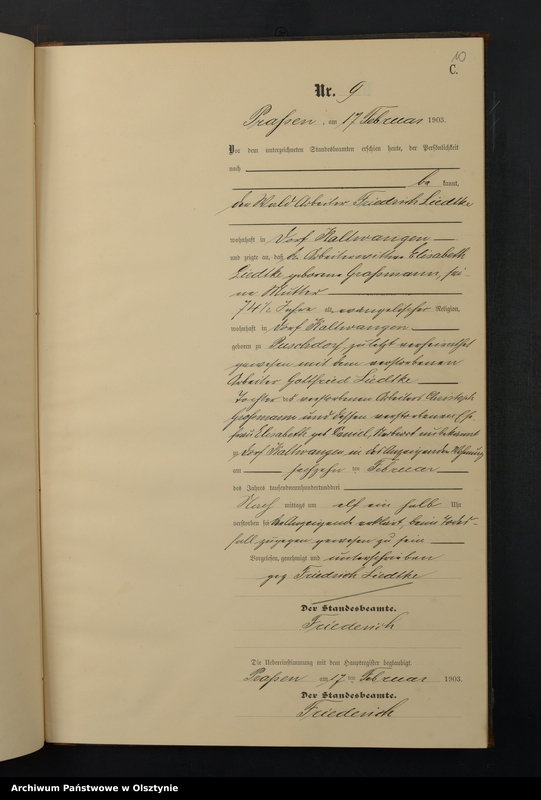 10
C.
Nr. 9
Praßen, am 17 Februar 1903.
Vor dem unterzeichneten Standesbeamten erschien heute, der Persönlichkeit
nach
be kannt,
der Wald Arbeiter Friedrich Liedtke
wohnhaft in Dorf Kaltwangen
und zeigte an, daß die Arbeiterwittwe Elisabeth
Liedtke geborene Graßmann, sei-
ne Mutter
74½ Jahre alt, evangelischer Religion,
wohnhaft in Dorf Kaltwangen
geboren zu Puschdorf, zuletzt verheirathet
gewesen mit dem verstorbenen
Arbeiter Gottfried Liedtke
Tochter des verstorbenen Arbeiters Christoph
Graßmann und dessen verstorbenen Ehe-
frau Elisabeth geb Daniel, Wohnort unbekannt
zu Dorf Kaltwangen, in des Anzeigenden Wohnung
am sechzehn ten Februar
des Jahres tausendneunhundertunddrei
Nach mittags um elf ein halb Uhr
verstorben sei Der Anzeigende erklärt, beim Todes-
fall zugegen gewesen zu sein
Vorgelesen, genehmigt und unterschrieben
gez Friedrich Liedtke
Der Standesbeamte.
Friederich
Die Uebereinstimmung mit dem Hauptregister beglaubigt.
Praßen am 17 ten Februar 1903.
Der Standesbeamte.
Friederich
Archiwum Państwowe w Olsztynie